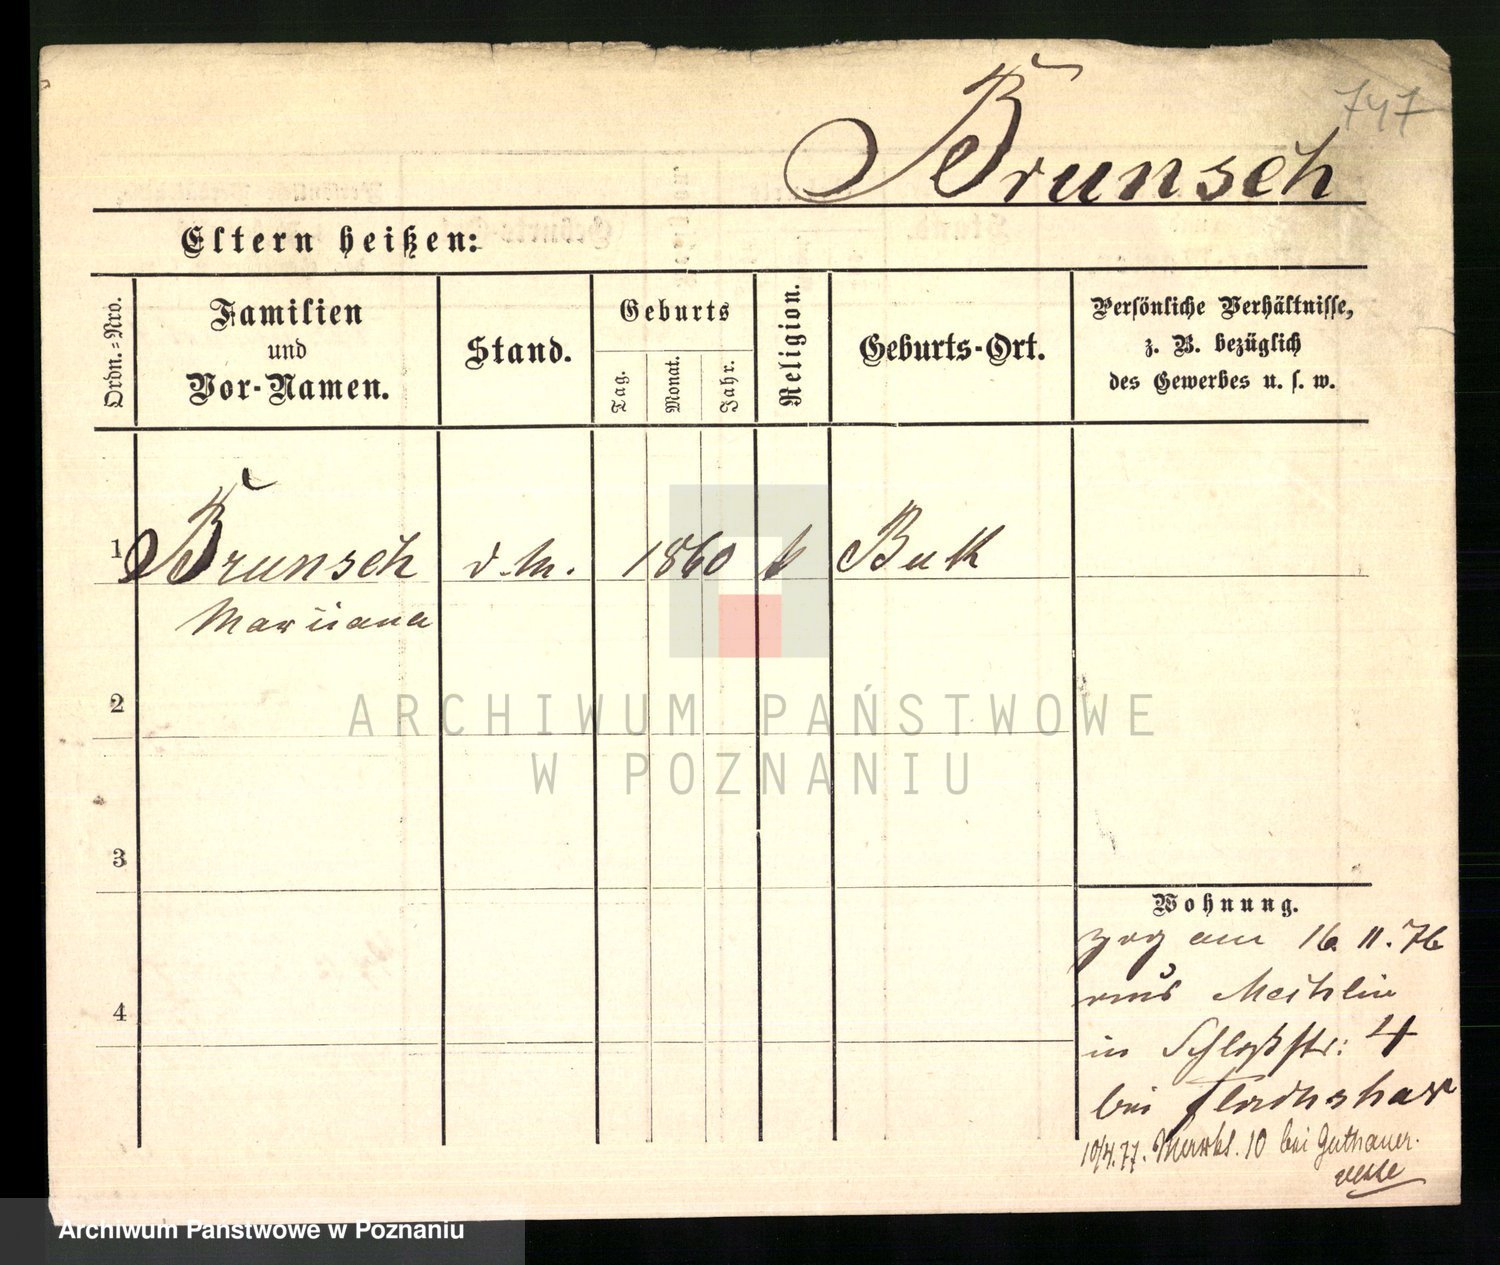 747
Brunsch
Eltern heißen:
Ordn.-Nro.
Familien
und
Vor-Namen.
Stand.
Geburts
Tag.
Monat.
Jahr.
Religion.
Geburts-Ort.
Persönliche Verhältnisse,
z. B. bezüglich
des Gewerbes u. s. w.
1 Brunsch d. M. 1860 k Buk
Mariiana
2
3
4
Wohnung.
zog am 16. 11. 76
aus
in Schloßstr: 4
bei
10/4.77. Markt. 10 bei Guthauer.
ARCHIWUM PAŃSTWOWE
W POZNANIU
Archiwum Państwowe w Poznaniu